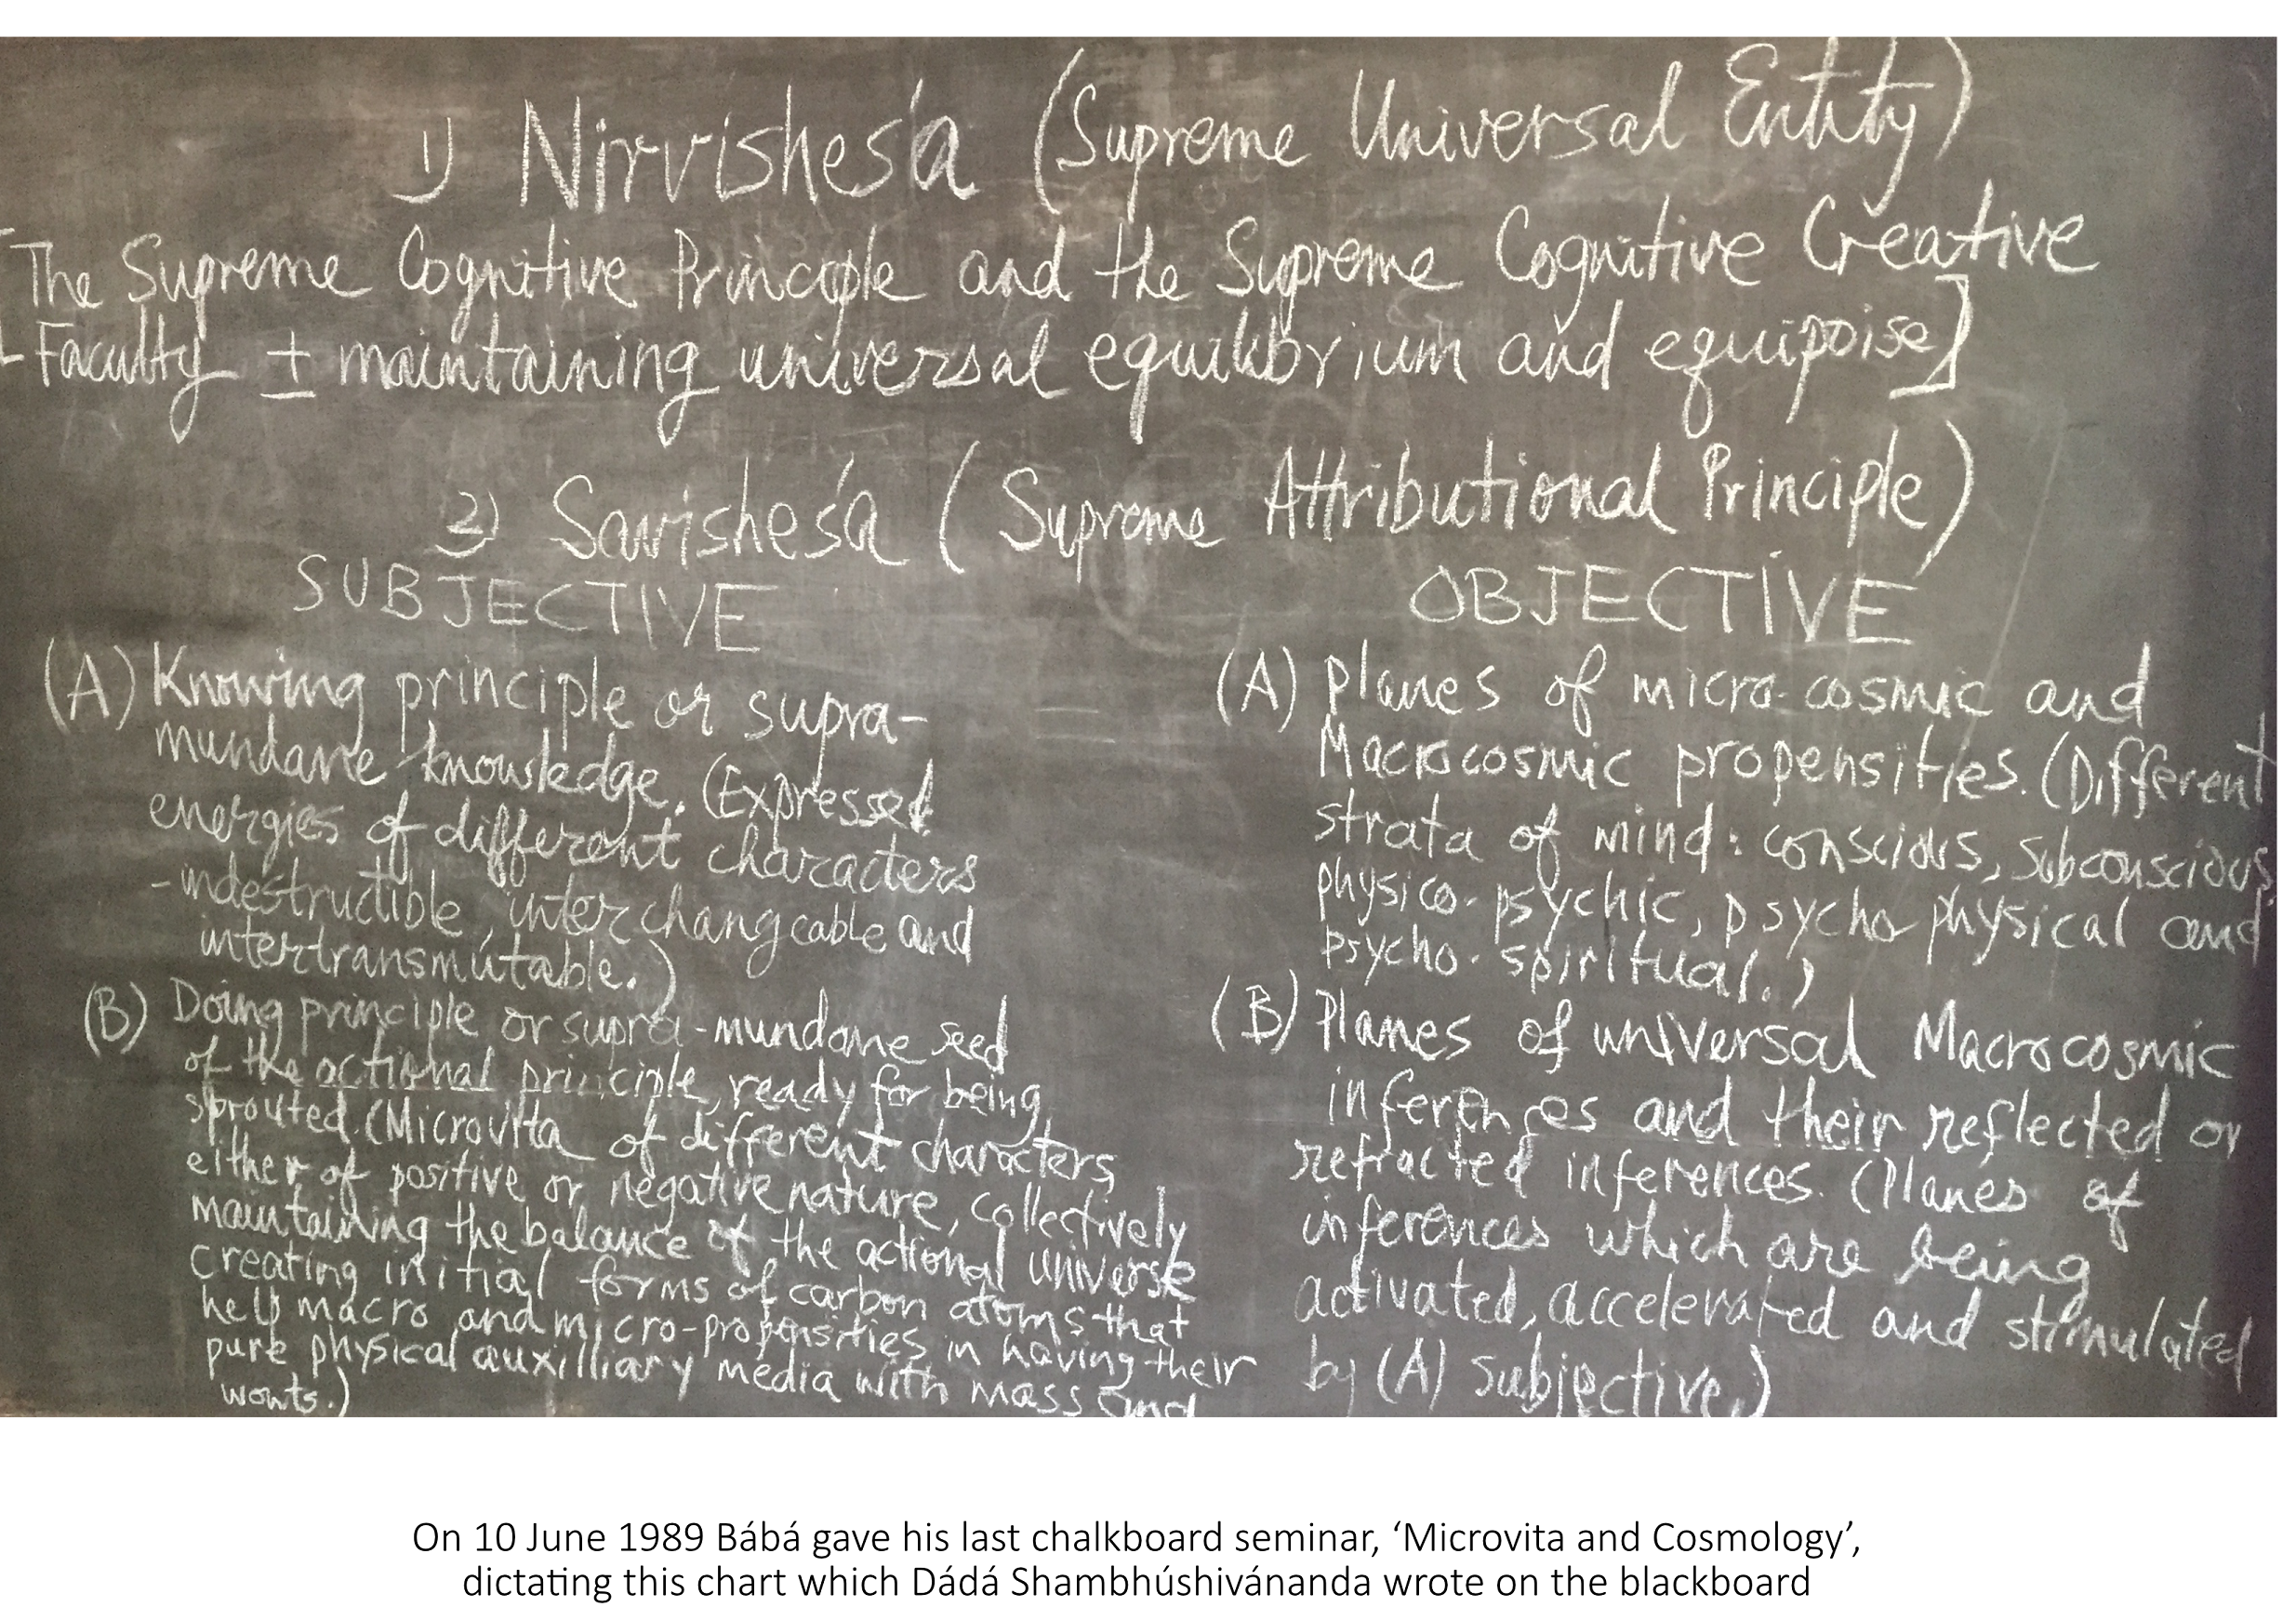 1) Nirvisheśa (Supreme Universal Entity)
[The Supreme Cognitive Principle and the Supreme Cognitive Creative
Faculty ± maintaining universal equilibrium and equipoise]
2) Savisheśa (Supreme Attributional Principle)
SUBJECTIVE
(A) Knowing principle or supra-
mundane knowledge. (Expressed
energies of different characters
-indestructible, interchangeable and
intertransmutable.)
(B) Doing principle or supra-mundane seed
of the actional principle, ready for being
sprouted. (Microvita of different characters,
either of positive or negative nature, collectively
maintaining the balance of the actional universe
creating initial forms of carbon atoms that
help macro and micro-propensities in having their
pure physical auxilliary media with mass and
wonts.)
OBJECTIVE
(A) Planes of micro-cosmic and
Macrocosmic propensities. (Different
strata of mind: conscious, subconscious,
physico-psychic, psycho-physical and
psycho-spiritual.)
(B) Planes of universal Macrocosmic
inferences and their reflected or
refracted inferences. (Planes of
inferences which are being
activated, accelerated and stimulated
by (A) subjective.)
On 10 June 1989 Bábá gave his last chalkboard seminar, ‘Microvita and Cosmology’,
dictating this chart which Dádá Shambhúshivánanda wrote on the blackboard